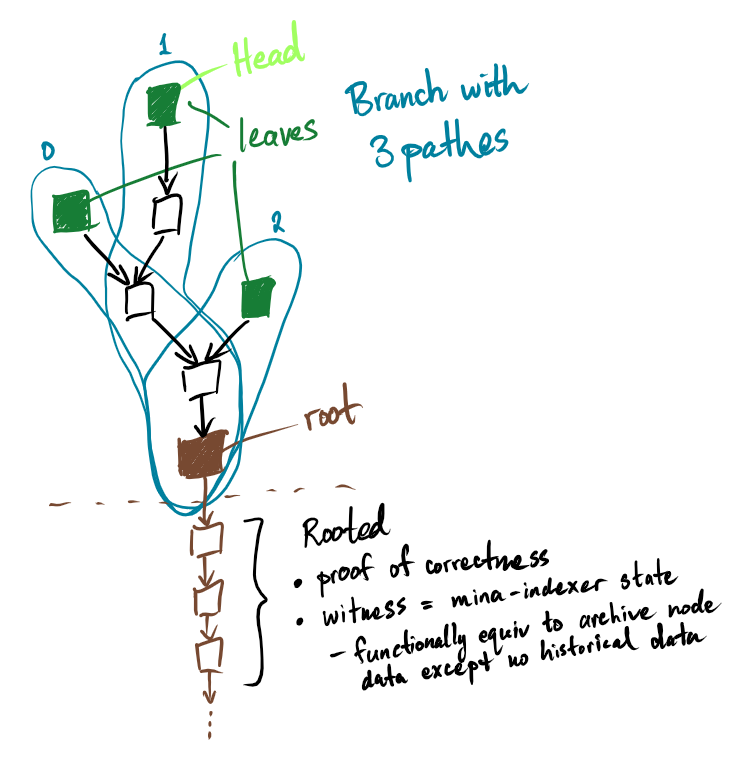 1
Head
Branch with
3 pathes
leaves
0
2
root
Rooted
• proof of correctness
• witness = mina-indexer state
- functionally equiv to archive node
data except no historical data